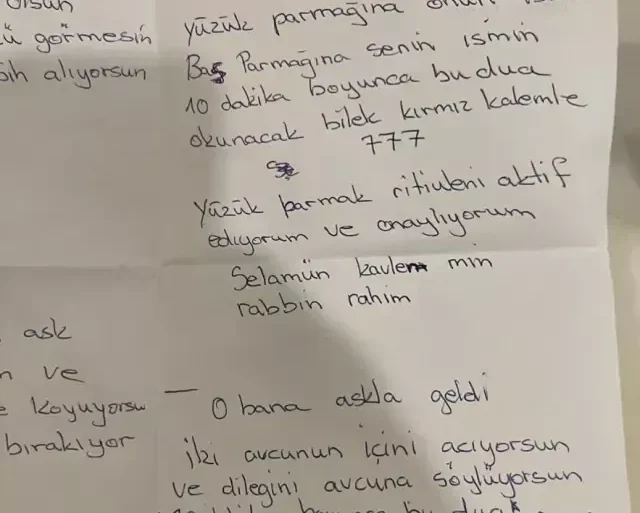 görmesin
alıyorsun
yüzük parmağına
Baş Parmağına senin ismin
10 dakika boyunca bu dua
okunacak bilek kırmız kalemle
777
yüzük parmak ritiuleni aktif
ediyorum ve onaylıyorum
Selamün kavlem min
rabbin rahim
ask
ve
koyuyorsu
bırakıyor
— O bana askla geldi
iki avcunun içini açıyorsun
ve dilegini avcuna söylüyorsun